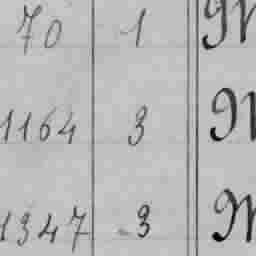 70 1 M
1164 3 M
1347 3 M